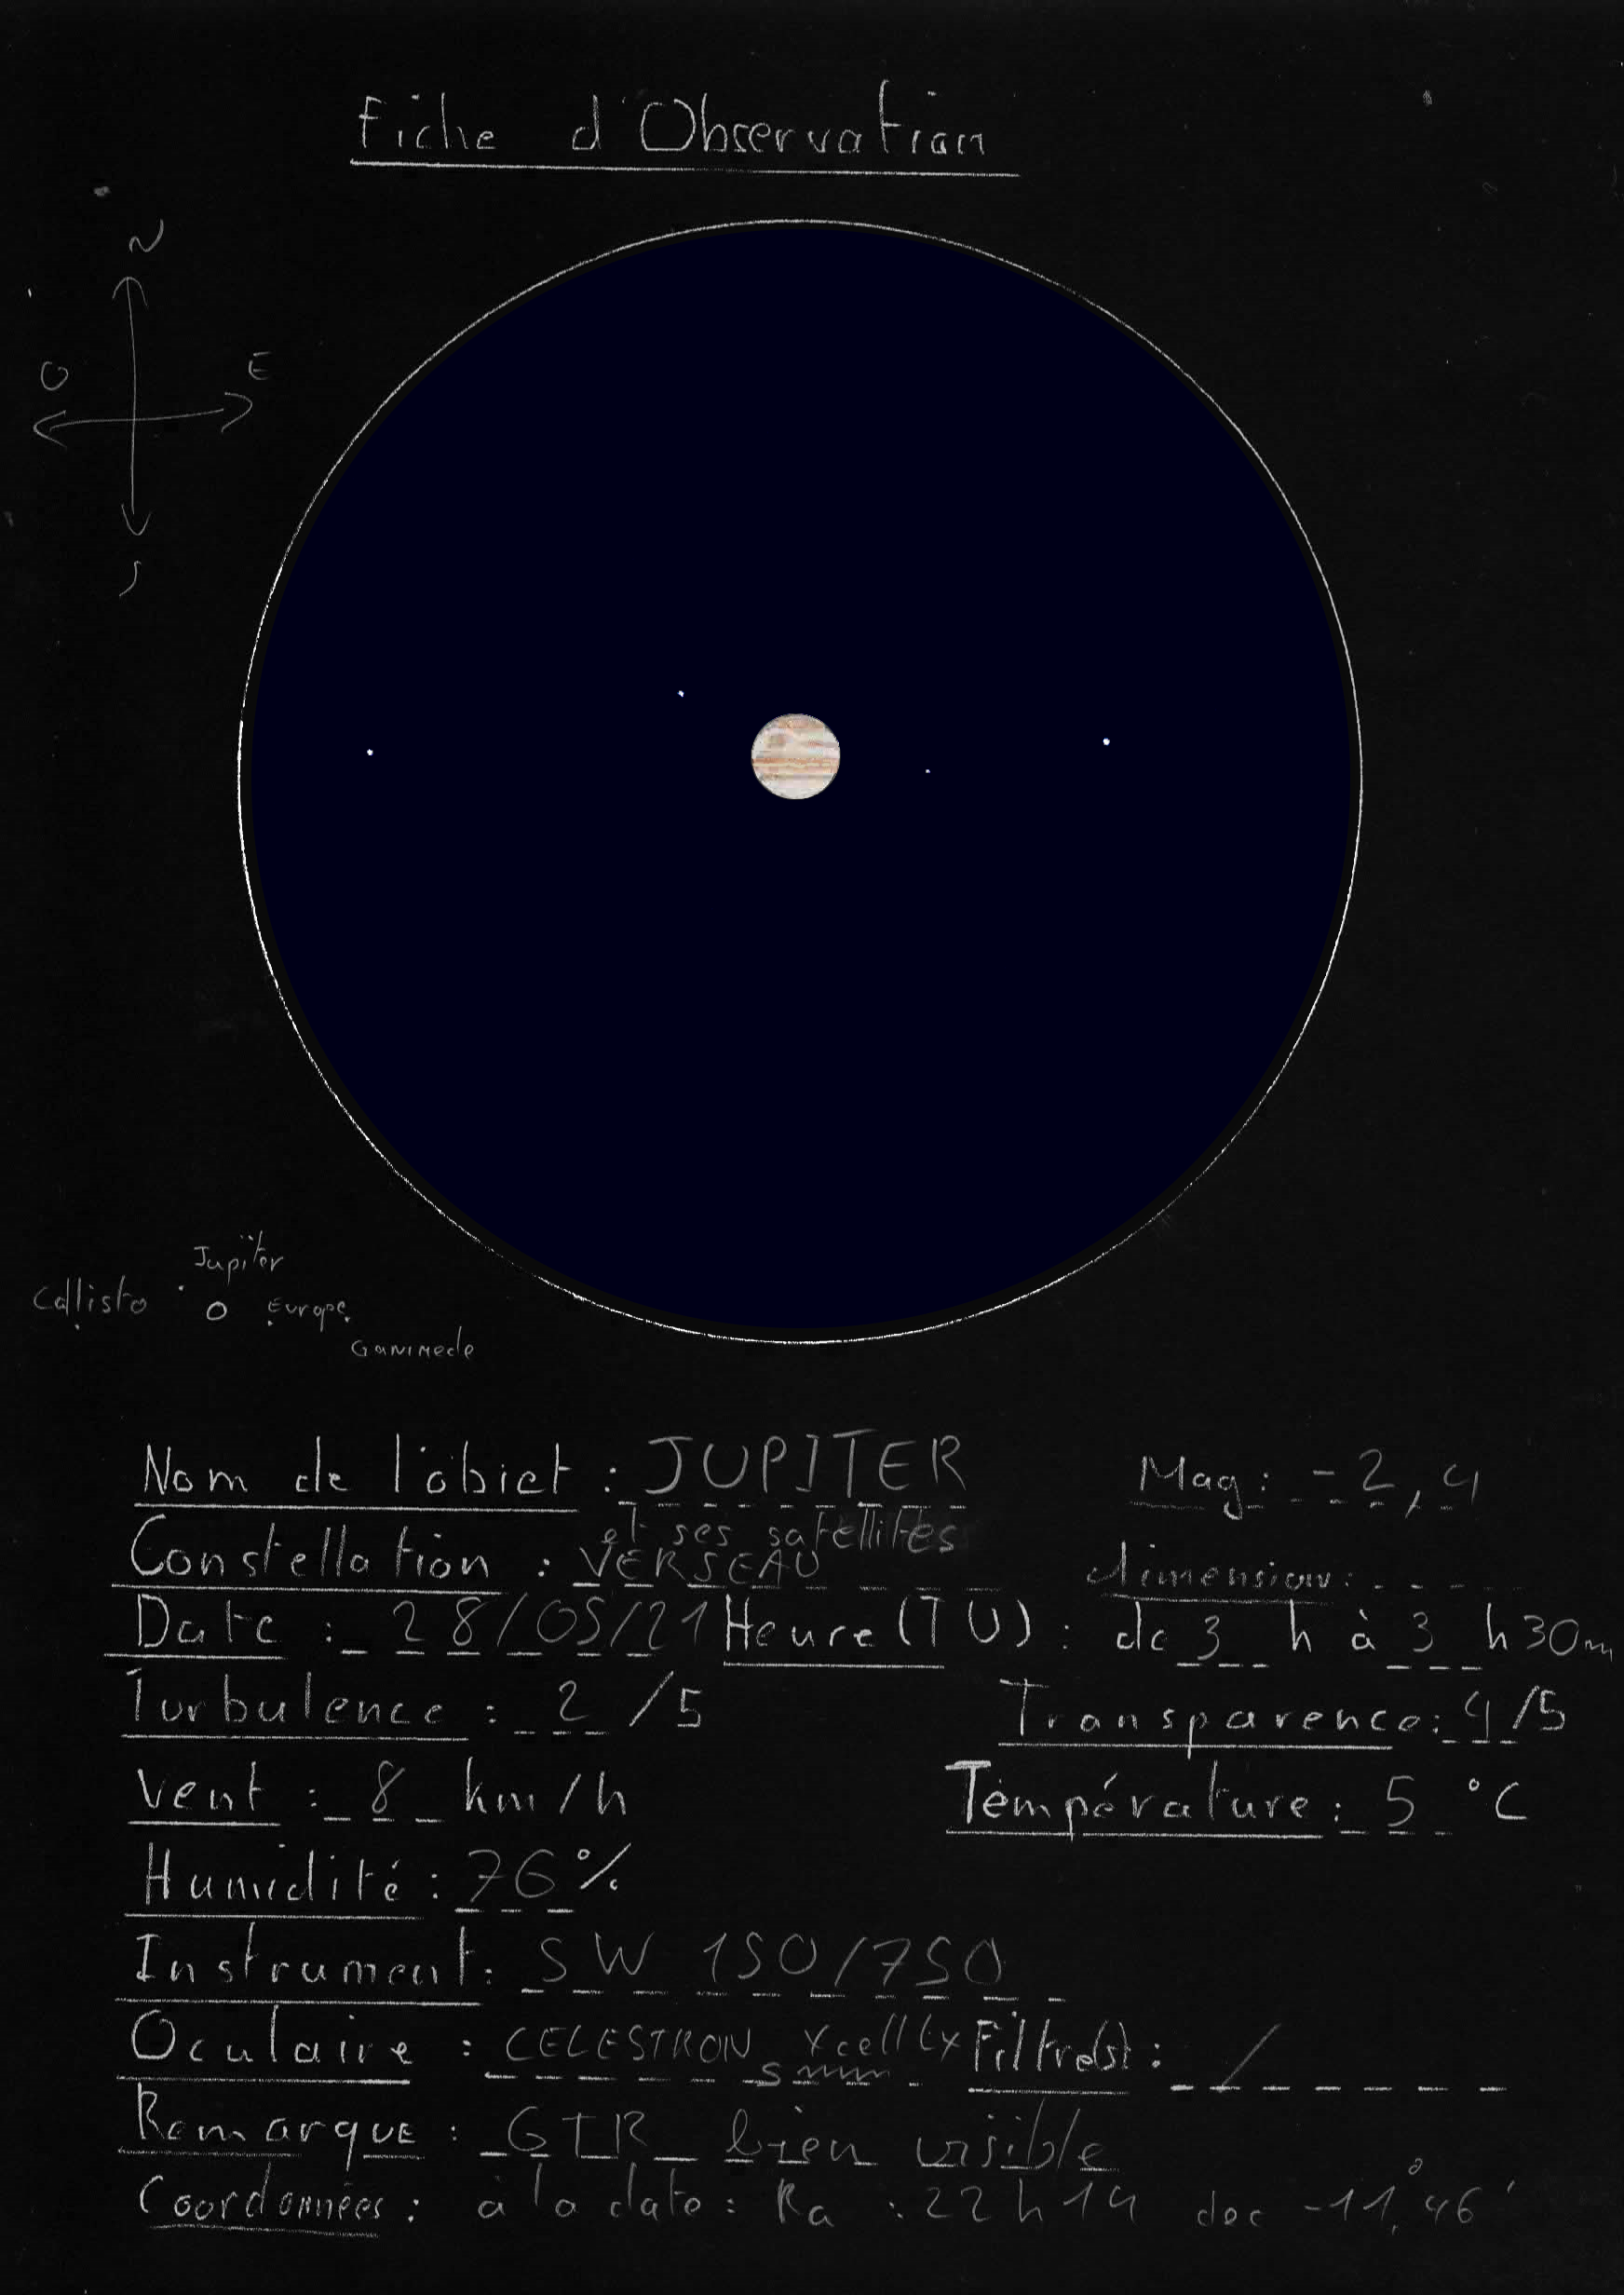 Fiche d'Observation
N
O E
S
Jupiter
Callisto Europe
Ganimede
Nom de l'objet : JUPITER Mag : -2,4
et ses satellites
Constellation : VERSEAU dimension :
Date : 28/05/21 Heure (TU) : de 3 h à 3 h 30m
Turbulence : 2 /5 Transparence : 4/5
Vent : 8 km/h Température : 5 °C
Humidité : 76 %
Instrument : SW 150/750
Oculaire : CELESTRON Xcell Lx Filtre(s) : /
5 mm
Remarque : GTR bien visible
Coordonnées : à la date : Ra : 22 h 14 dec -11° 46'